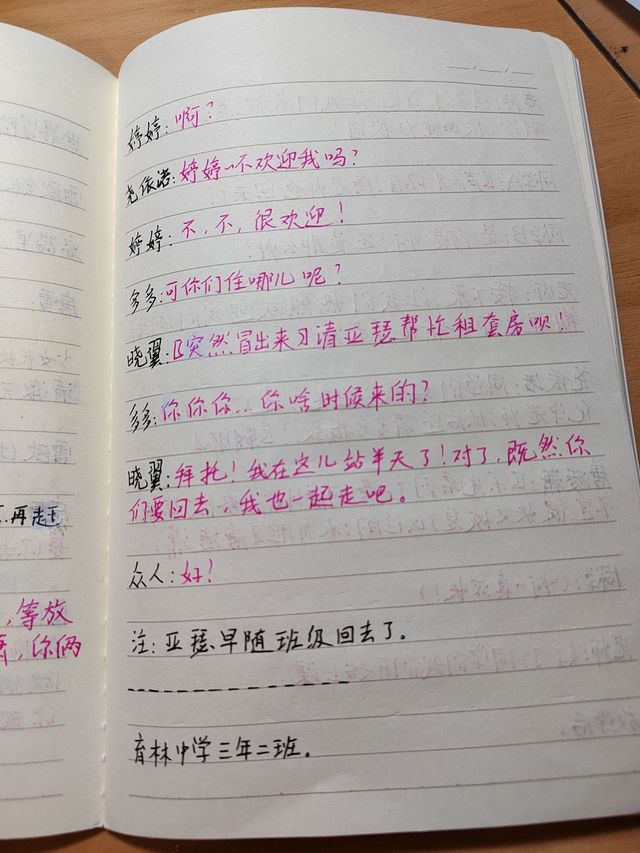 再走下
，等放
，你俩
婷婷：啊？
尧依诺：婷婷～不欢迎我吗？
婷婷：不，不，很欢迎！
多多：可你们住哪儿呢？
晓翼：[突然冒出来]请亚瑟帮忙租套房呗！
多多：你你你…你啥时候来的？
晓翼：拜托！我在这儿站半天了！对了，既然你
们要回去，我也一起走吧。
众人：好！
注：亚瑟早随班级回去了。
育林中学三年二班。